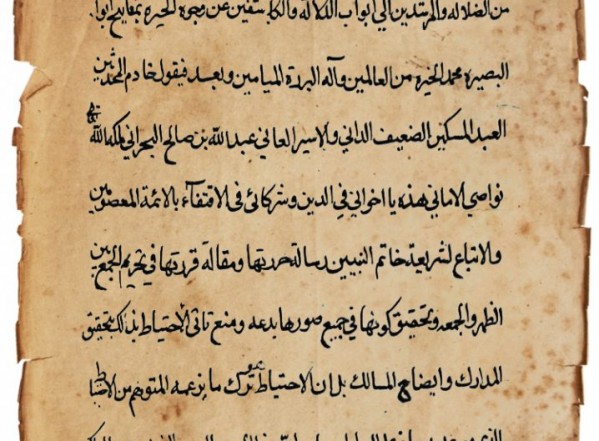 من الضلالة والمرشدين الى ابواب الدلالة والكاشفين عن وجوه الحيرة بمفاتيح ابوا
البصيرة محمد الخيرة من العالمين وآله البررة الميامين وبعد فيقول خادم المحدثين
العبد المسكين الضعيف الداني والاسير العاني عبد الله بن صالح البحراني ملكه الله تعالى
نواصي الاماني هذه يا اخواني في الدين وشركائي في الاقتفاء بالائمة المعصومين
والاتباع لشريعة خاتم النبيين رسالة حررتها ومقالة قررتها في تحريم الجمع بين
الظهر والجمعه وتحقيق كونها في جميع صورها بدعه ومنع تاتى الاحتياط بذلك بتحقيق
المدارك وايضاح المسالك بل ان الاحتياط ترك ما يزعمه المتوهم من الاحتياط